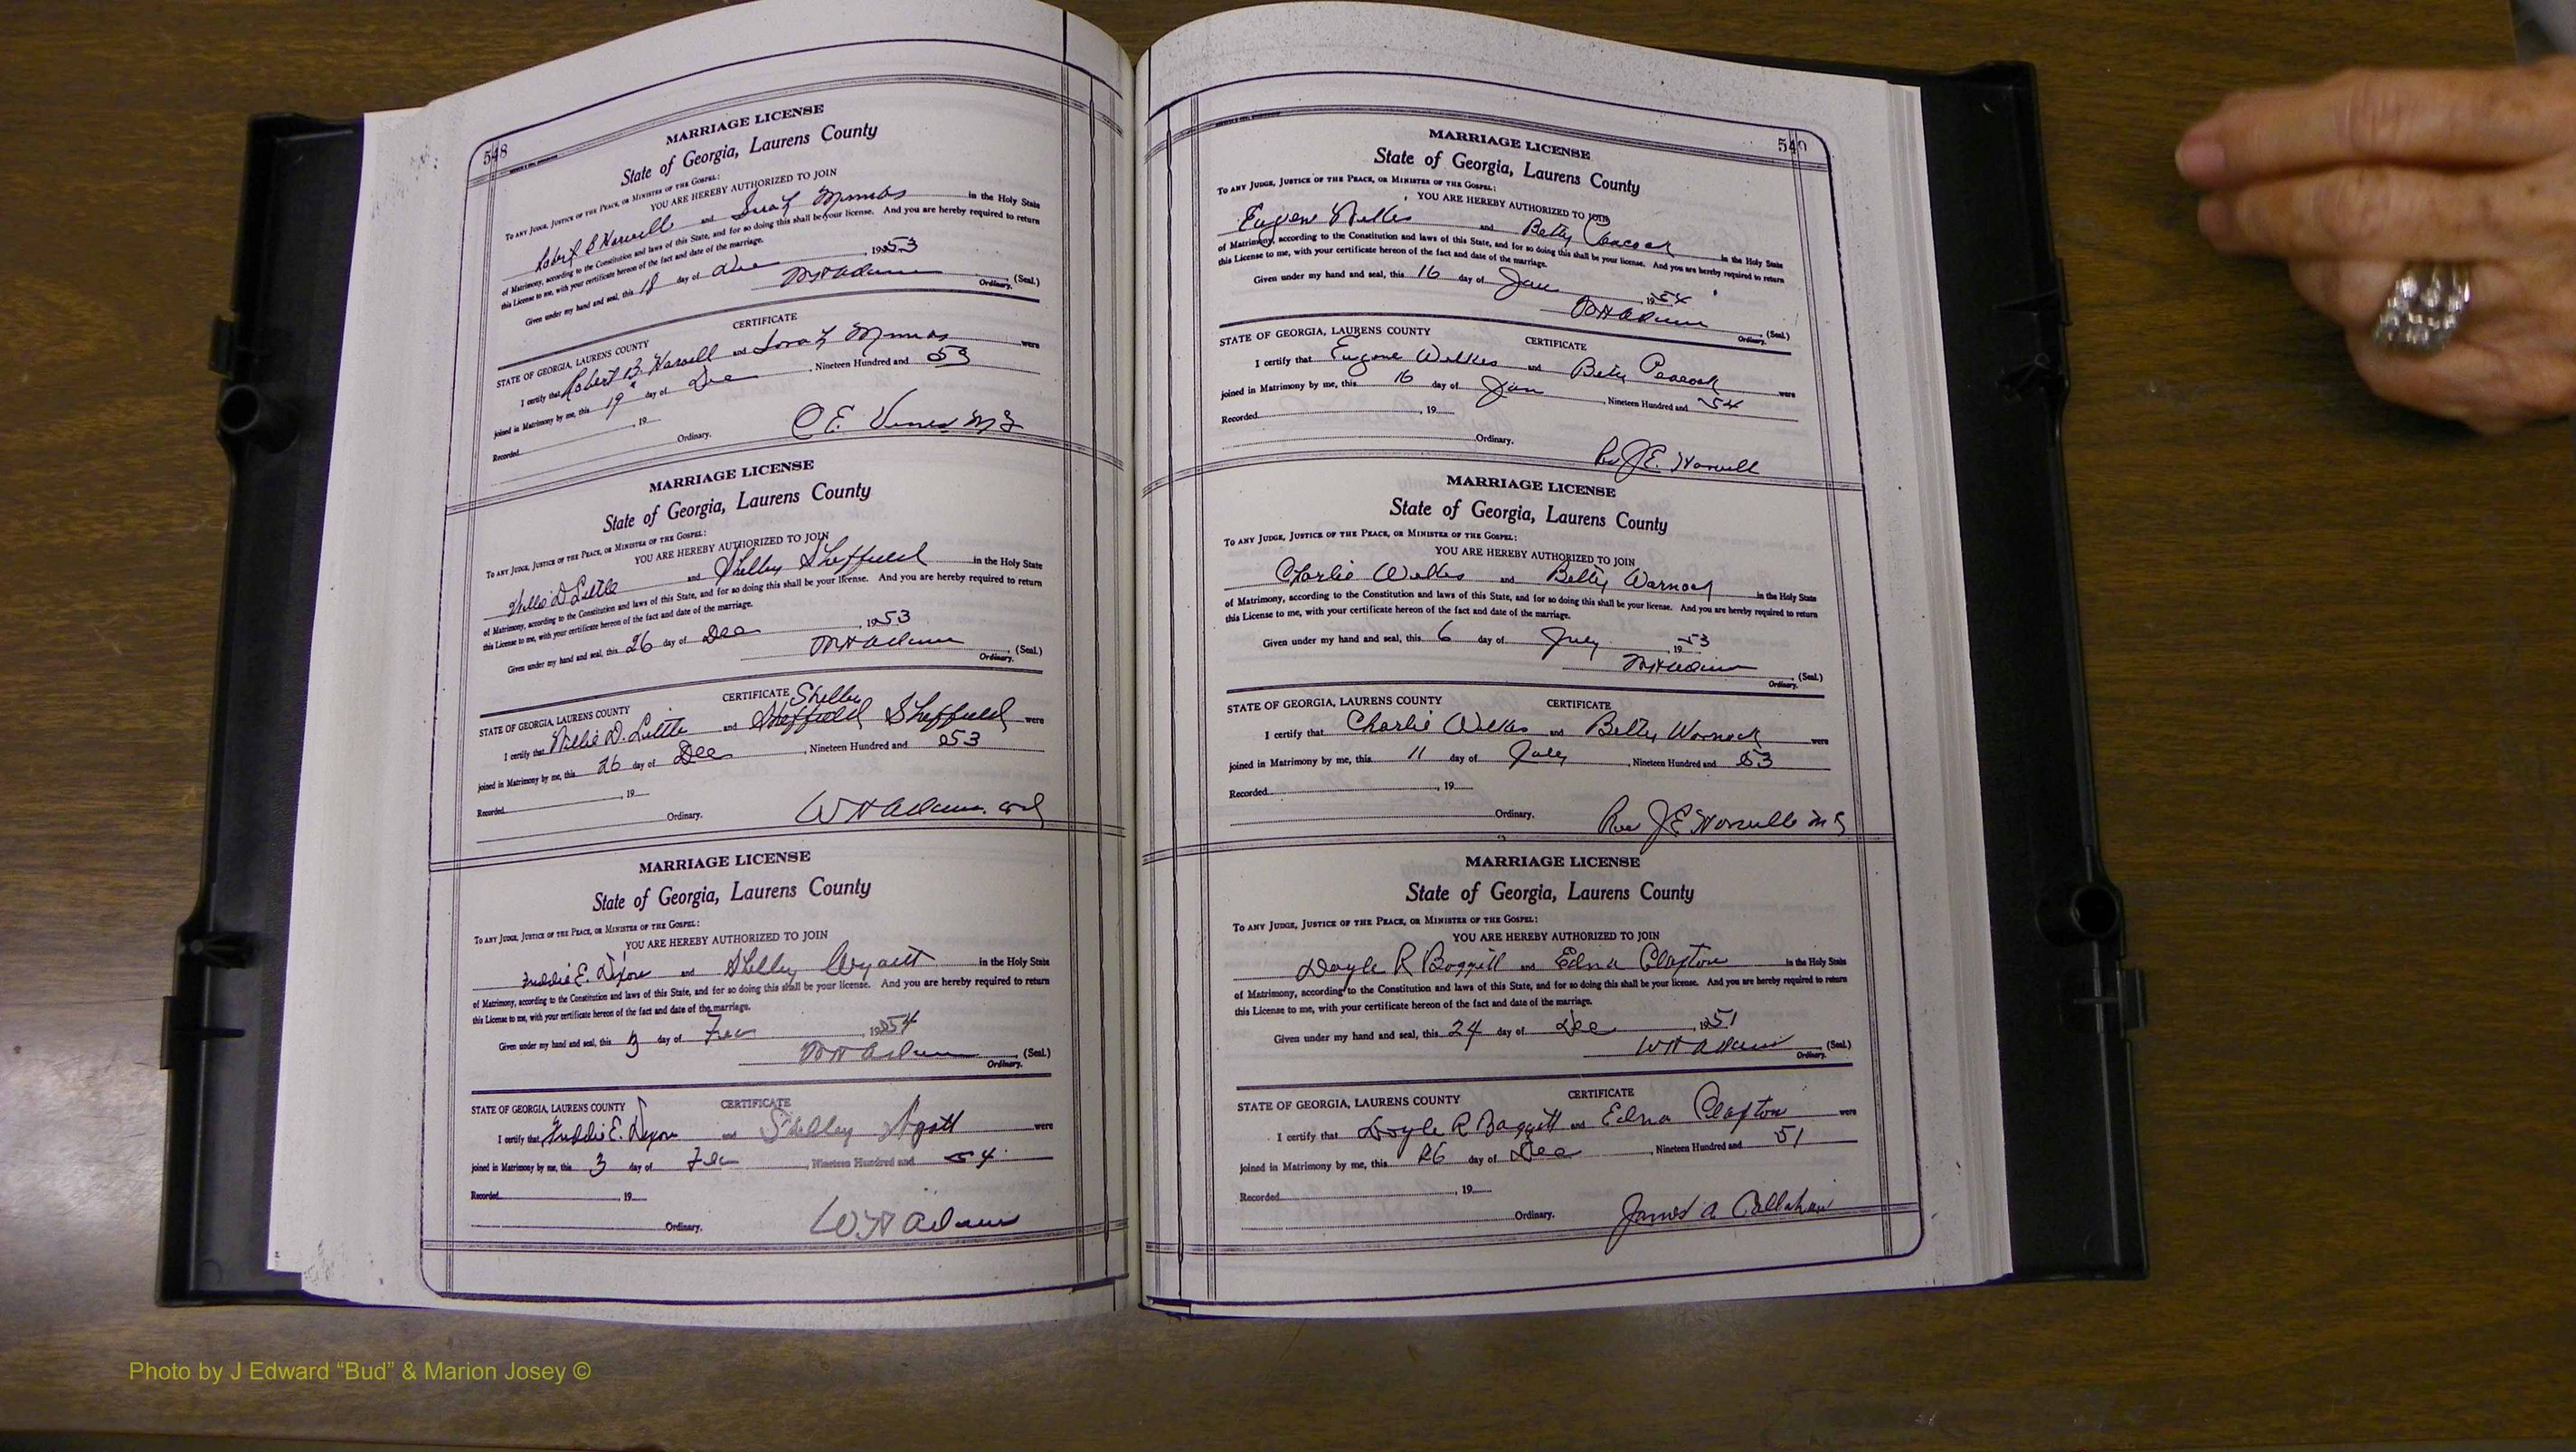 548
MARRIAGE LICENSE
State of Georgia, Laurens County
TO ANY JUDGE, JUSTICE OF THE PEACE, OR MINISTER OF THE GOSPEL:
YOU ARE HEREBY AUTHORIZED TO JOIN
Robert B Harvell and in the Holy State
of Matrimony, according to the Constitution and laws of this State, and for so doing this shall be your license. And you are hereby required to return
this License to me, with your certificate hereon of the fact and date of the marriage.
Given under my hand and seal, this 18 day of Dec, 1953
WH Adams (Seal.)
Ordinary.
CERTIFICATE
STATE OF GEORGIA, LAURENS COUNTY
I certify that Robert B. Harvell and were
joined in Matrimony by me, this 19 day of Dec, Nineteen Hundred and 53
Recorded, 19
Ordinary. C E
MARRIAGE LICENSE
State of Georgia, Laurens County
TO ANY JUDGE, JUSTICE OF THE PEACE, OR MINISTER OF THE GOSPEL:
YOU ARE HEREBY AUTHORIZED TO JOIN
Willie D Little and Shelby Sheffield in the Holy State
of Matrimony, according to the Constitution and laws of this State, and for so doing this shall be your license. And you are hereby required to return
this License to me, with your certificate hereon of the fact and date of the marriage.
Given under my hand and seal, this 26 day of Dec, 1953
WH Adams (Seal.)
Ordinary.
CERTIFICATE Shelby
STATE OF GEORGIA, LAURENS COUNTY
I certify that Willie D. Little and Sheffield Sheffield were
joined in Matrimony by me, this 26 day of Dec, Nineteen Hundred and 53
Recorded, 19
Ordinary. WH Adams. ord
MARRIAGE LICENSE
State of Georgia, Laurens County
TO ANY JUDGE, JUSTICE OF THE PEACE, OR MINISTER OF THE GOSPEL:
YOU ARE HEREBY AUTHORIZED TO JOIN
Freddie E. Dixon and Shelby Wyatt in the Holy State
of Matrimony, according to the Constitution and laws of this State, and for so doing this shall be your license. And you are hereby required to return
this License to me, with your certificate hereon of the fact and date of the marriage.
Given under my hand and seal, this 3 day of Feb, 1954
WH Adams (Seal.)
Ordinary.
CERTIFICATE
STATE OF GEORGIA, LAURENS COUNTY
I certify that Freddie E. Dixon and Shelley Wyatt were
joined in Matrimony by me, this 3 day of Feb, Nineteen Hundred and 54
Recorded, 19
Ordinary. WH Adams
549
MARRIAGE LICENSE
State of Georgia, Laurens County
TO ANY JUDGE, JUSTICE OF THE PEACE, OR MINISTER OF THE GOSPEL:
YOU ARE HEREBY AUTHORIZED TO JOIN
Eugene Wilkes and Betty Peacock in the Holy State
of Matrimony, according to the Constitution and laws of this State, and for so doing this shall be your license. And you are hereby required to return
this License to me, with your certificate hereon of the fact and date of the marriage.
Given under my hand and seal, this 16 day of Jan, 1954
WH Adams (Seal.)
Ordinary.
STATE OF GEORGIA, LAURENS COUNTY CERTIFICATE
I certify that Eugene Wilkes and Betty Peacock were
joined in Matrimony by me, this 16 day of Jan, Nineteen Hundred and 54
Recorded, 19
Ordinary.
Rev J E. Harvell
MARRIAGE LICENSE
State of Georgia, Laurens County
TO ANY JUDGE, JUSTICE OF THE PEACE, OR MINISTER OF THE GOSPEL:
YOU ARE HEREBY AUTHORIZED TO JOIN
Charlie Wilkes and Betty Warnock in the Holy State
of Matrimony, according to the Constitution and laws of this State, and for so doing this shall be your license. And you are hereby required to return
this License to me, with your certificate hereon of the fact and date of the marriage.
Given under my hand and seal, this 6 day of July, 1953
WH Adams (Seal.)
Ordinary.
STATE OF GEORGIA, LAURENS COUNTY CERTIFICATE
I certify that Charlie Wilkes and Betty Warnock were
joined in Matrimony by me, this 11 day of July, Nineteen Hundred and 53
Recorded, 19
Ordinary. Rev J E Harvell M G
MARRIAGE LICENSE
State of Georgia, Laurens County
TO ANY JUDGE, JUSTICE OF THE PEACE, OR MINISTER OF THE GOSPEL:
YOU ARE HEREBY AUTHORIZED TO JOIN
Doyle R Baggett and Edna Claxton in the Holy State
of Matrimony, according to the Constitution and laws of this State, and for so doing this shall be your license. And you are hereby required to return
this License to me, with your certificate hereon of the fact and date of the marriage.
Given under my hand and seal, this 24 day of Dec, 1951
WH Adams (Seal.)
Ordinary.
STATE OF GEORGIA, LAURENS COUNTY CERTIFICATE
I certify that Doyle R Baggett and Edna Claxton were
joined in Matrimony by me, this 26 day of Dec, Nineteen Hundred and 51
Recorded, 19
Ordinary. James A Callahan
Photo by J Edward “Bud” & Marion Josey ©